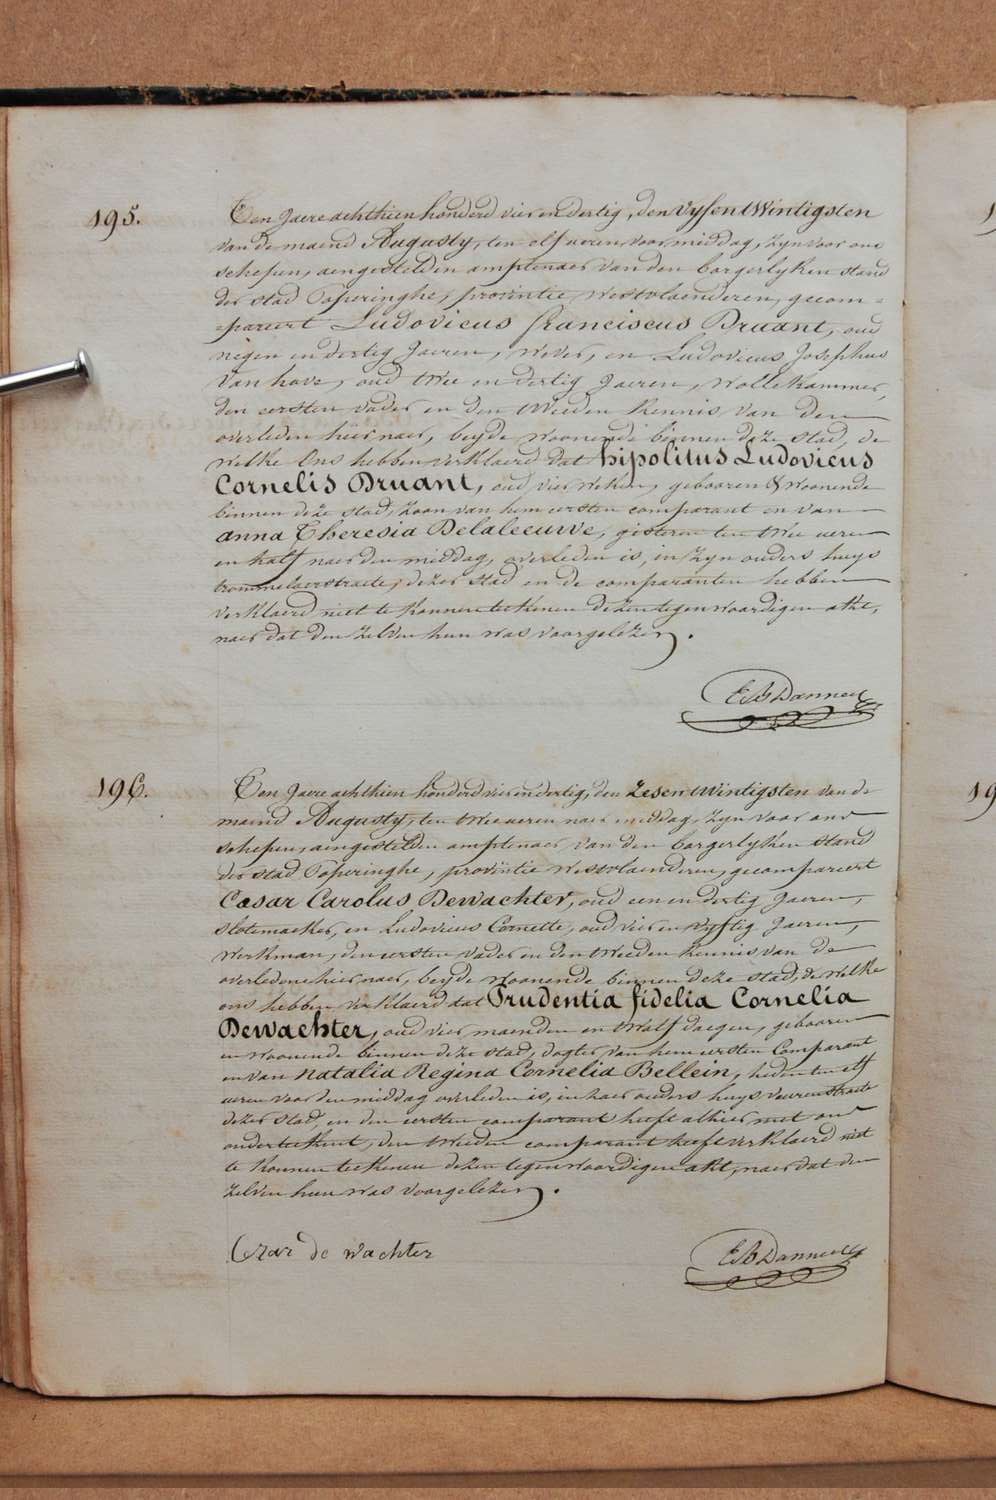 195.
Een Jaere achthien honderd vier en dertig, den vyfentwintigsten
van de maend Augusty, ten elf ueren voor middag, zyn voor ons
schepen, aengestelden amptenaer van den borgerlyken stand
der stad Poperinghe, provintie Westvlaenderen, gecom=
=pareert Ludovicus franciscus Druant, oud
negen en dertig Jaeren, wever, en Ludovicus Josephus
Vanhove, oud twee en dertig Jaeren, wollekammer,
den eersten vader en den tweeden kennis van den
overleden hiernaer, beyde woonende binnen deze stad, de
welke Ons hebben verklaerd dat hipolitus Ludovicus
Cornelis Druant, oud vier weken, gebooren & woonende
binnen deze stad, zoon van hem eersten comparant en van
anna Theresia Delaleeuwe, gisteren ten twee ueren
en half naer den middag, overleden is, in zyn ouders huys
trommelaerstraete, dezer stad en de comparanten hebben
verklaerd niet te konnen teekenen dezen tegenwoordigen akte,
naer dat den zelven hun was voorgelezen.
196.
Een Jaere achthien honderd vier en dertig, den zesentwintigsten van de
maend Augusty, ten twee ueren naer middag, zyn voor ons
schepen, aengestelden amptenaer van den borgerlyken stand
der stad Poperinghe, provintie Westvlaenderen, gecompareert
Cæsar Carolus Dewachter, oud een en dertig Jaeren,
slotemaeker, en Ludovicus Cornette, oud vier en vyftig Jaeren,
werkman, den eersten vader en den tweeden kennis van de
overledene hier naer, beyde woonende binnen deze stad, de welke
ons hebben verklaerd dat Prudentia fidelia Cornelia
Dewachter, oud vier maenden en twalf daegen, gebooren
en woonende binnen deze stad, dogter van hem eersten Comparant
en van Natalia Regina Cornelia Bellein, heden ten elf
ueren voor den middag overleden is, in haer ouders huys veurenstraete
dezer stad, en den eersten comparant heeft alhier met ons
onderteekent, den tweeden comparant heeft verklaerd niet
te konnen teekenen dezen tegenwoordigen akt, naer dat den
zelven hun was voorgelezen.
Cezar de wachter